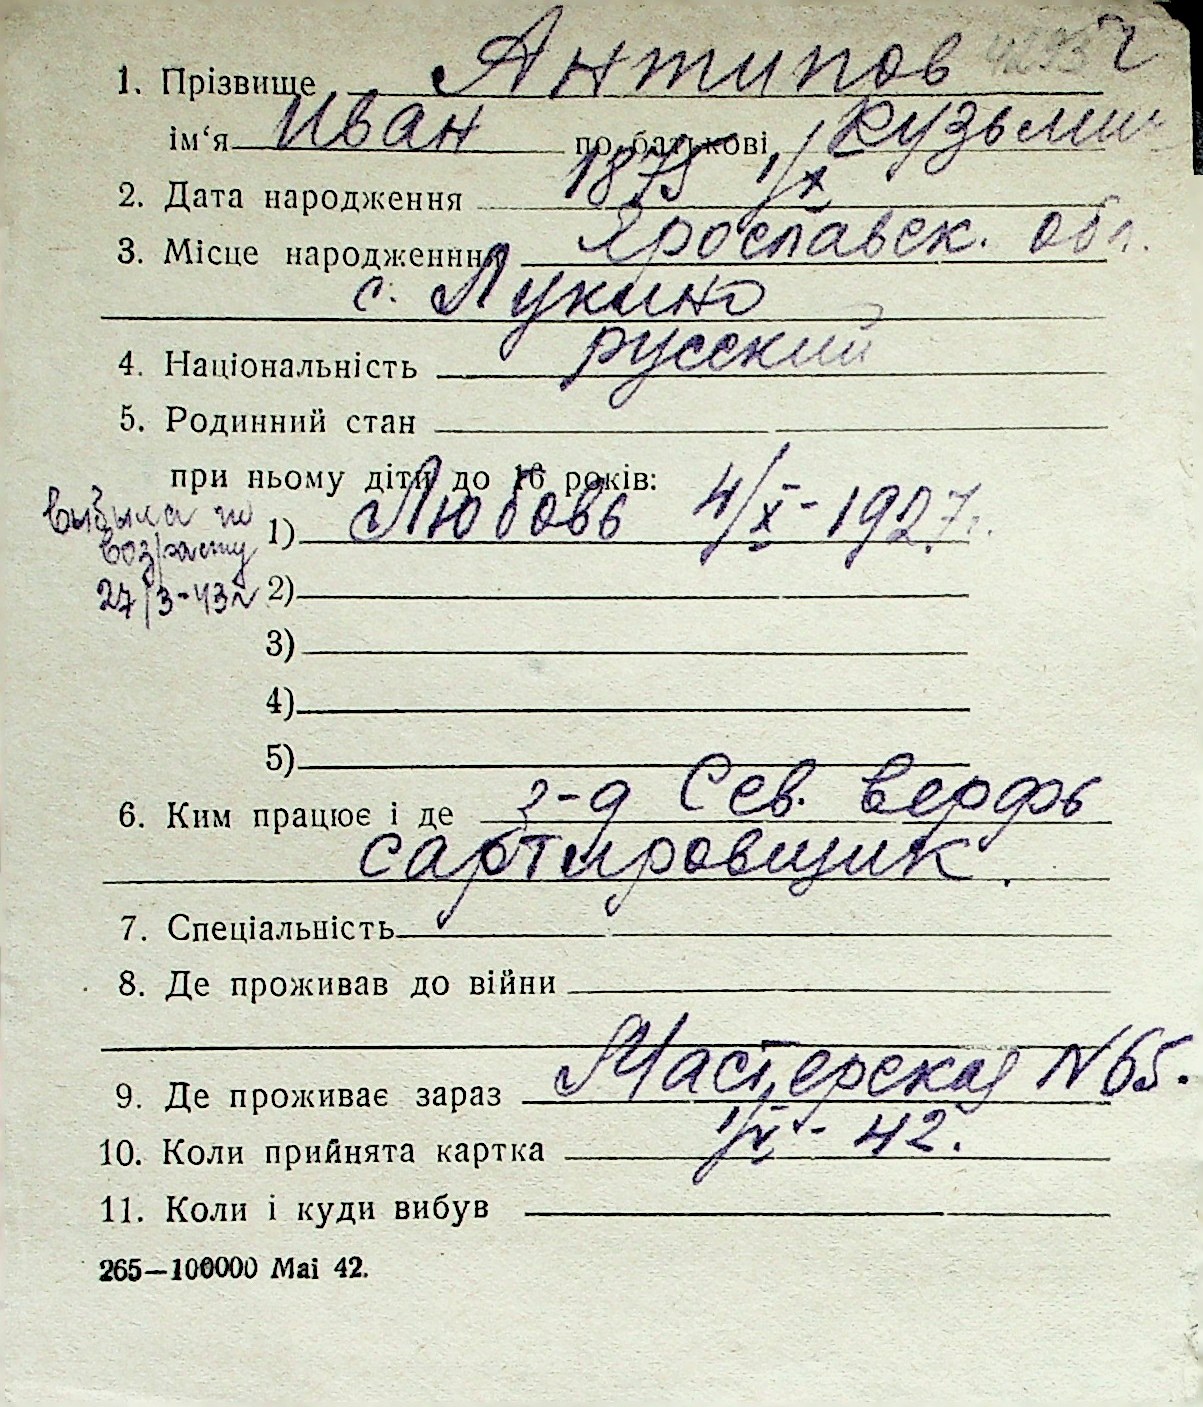 1. Прізвище Антипов
ім‘я Иван по батькові Кузьмич
2. Дата народження 1875 1/X
3. Місце народженння Ярославск. обл.
с. Лукино
4. Національність русский
5. Родинний стан
при ньому діти до 16 років:
1) Любовь 4/X-1927г.
выбыла по
возрасту
27/3-43г
2)
3)
4)
5)
6. Ким працює і де з-д Сев. верфь
сартировщик.
7. Спеціальність
8. Де проживав до війни
9. Де проживає зараз Мастерская N 65.
10. Коли прийнята картка 1/V-42.
11. Коли і куди вибув
265—100000 Mai 42.